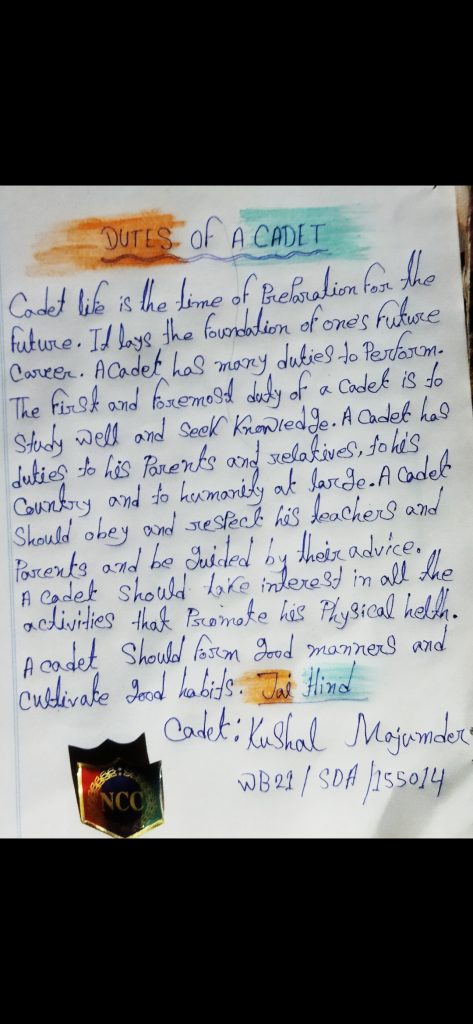 DUTES OF A CADET
Cadet life is the time of Preparation for the
future. It lays the foundation of one's future
Career. A Cadet has many duties to Perform.
The first and foremost duty of a Cadet is to
Study well and Seek Knowledge. A Cadet has
duties to his Parents and relatives, to his
Country and to humanity at large. A Cadet
Should obey and respect his teachers and
Parents and be guided by their advice.
A Cadet Should take interest in all the
activities that Promote his Physical helth.
A cadet Should form good manners and
Cultivate good habits. Jai Hind
Cadet: Kushal Majumder
WB21/SDA/155014
NCC